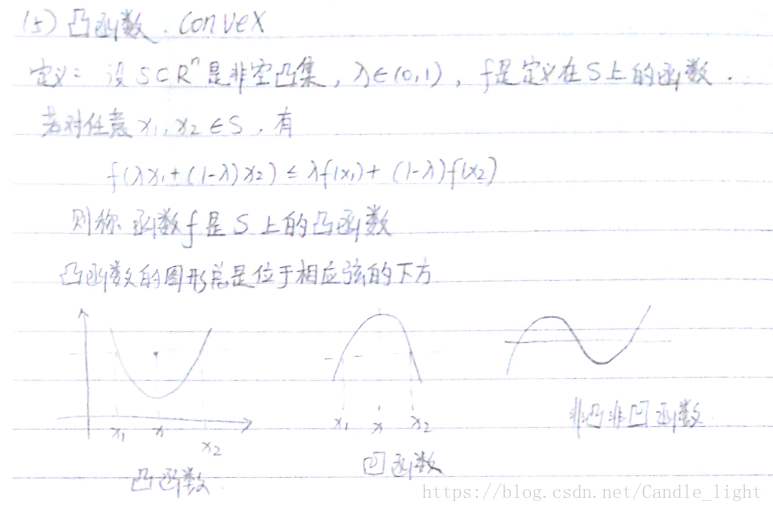 (5) 凸函数. convex
定义: 设 S⊂Rⁿ 是非空凸集, λ∈(0,1), f是定义在S上的函数.
若对任意 x₁, x₂ ∈ S, 有
f(λx₁+(1-λ)x₂) ≤ λf(x₁)+ (1-λ)f(x₂)
则称 函数 f 是 S 上的凸函数
凸函数的图形总是位于相应弦的下方
x₁ x x₂
x₁ x x₂
非凸非凹函数
凸函数
凹函数
https://blog.csdn.net/Candle_light